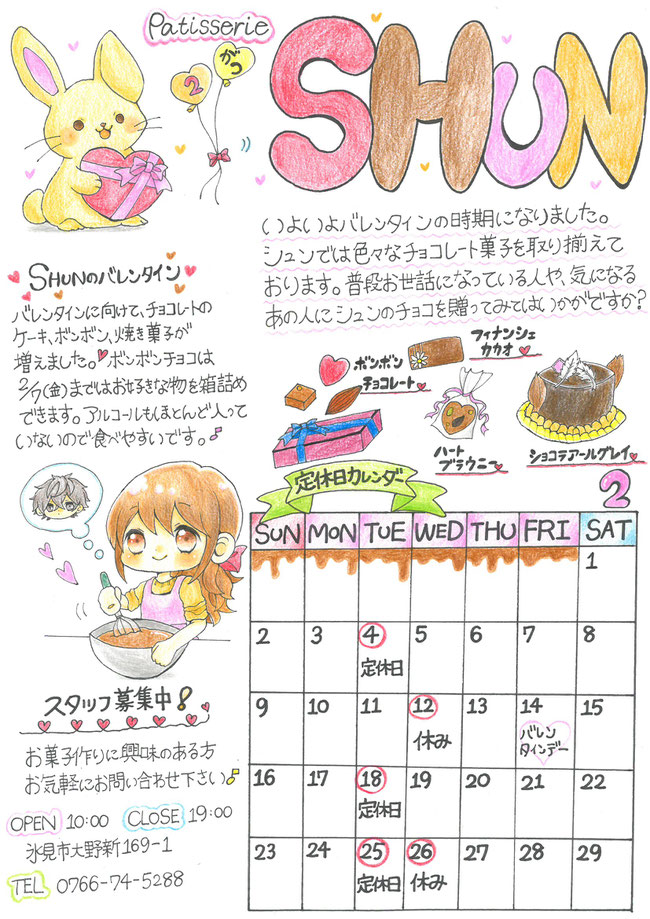 Patisserie
SHUN
2
がつ
いよいよバレンタインの時期になりました。
シュンでは色々なチョコレート菓子を取り揃えて
おります。普段お世話になっている人や、気になる
あの人にシュンのチョコを贈ってみてはいかがですか?
SHUNのバレンタイン
バレンタインに向けて、チョコレートの
ケーキ、ボンボン、焼き菓子が
増えました。ボンボンチョコは
2/7(金)まではお好きな物を箱詰め
できます。アルコールもほとんど入って
いないので食べやすいです。♪
ボンボン
チョコレート
フィナンシェ
カカオ
ハート
ブラウニー
ショコラアールグレイ
定休日カレンダー
2
SUN MON TUE WED THU FRI SAT
1
2 3 4 5 6 7 8
定休日
9 10 11 12 13 14 15
休み
バレン
タインデー
16 17 18 19 20 21 22
定休日
23 24 25 26 27 28 29
定休日 休み
スタッフ募集中!
お菓子作りに興味のある方
お気軽にお問い合わせ下さい♪
OPEN 10:00 CLOSE 19:00
氷見市大野新169-1
TEL 0766-74-5288